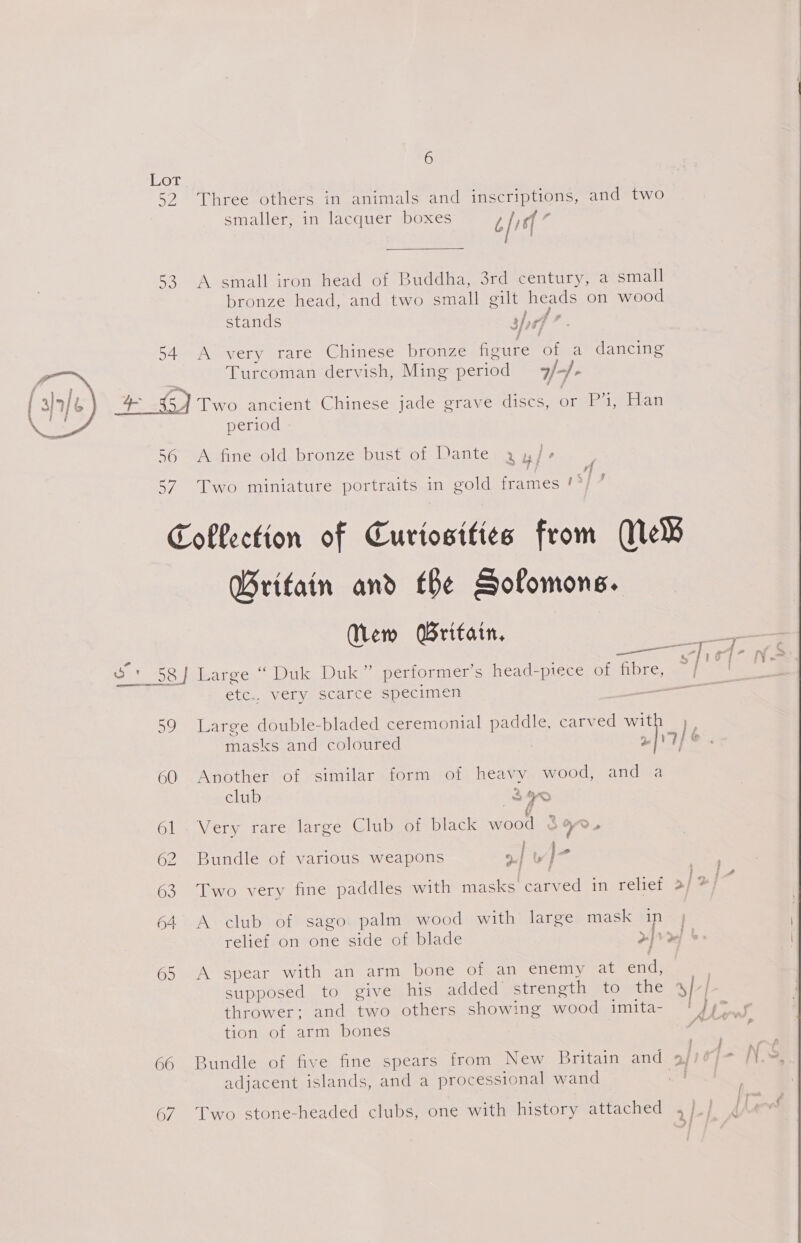 6
Lot
52 Three others in animals and inscriptions, and two
smaller, in lacquer boxes
53 A small iron head of Buddha, 3rd century, a small
bronze head, and two small gilt heads on wood
stands
54 A very rare Chinese bronze figure of a dancing
Turcoman dervish, Ming period
55 Two ancient Chinese jade grave discs, or P'i, Han
period
56 A fine old bronze bust of Dante
57 Two miniature portraits in gold frames
Collection of Curiosities from New
Britain and the Solomons.
New Britain.
58 Large “ Duk Duk ” performer's head-piece of fibre,
etc., very scarce specimen
59 Large double-bladed ceremonial paddle, carved with
masks and coloured
60 Another of similar form of heavy wood, and a
club
61 Very rare large Club of black wood
62 Bundle of various weapons
63 Two very fine paddles with masks carved in relief
64 A club of sago palm wood with large mask in
relief on one side of blade
65 A spear with an arm bone of an enemy at end,
supposed to give his added strength to the
thrower; and two others showing wood imita-
tion of arm bones
66 Bundle of five fine spears from New Britain and
adjacent islands, and a processional wand
67 Two stone-headed clubs, one with history attached